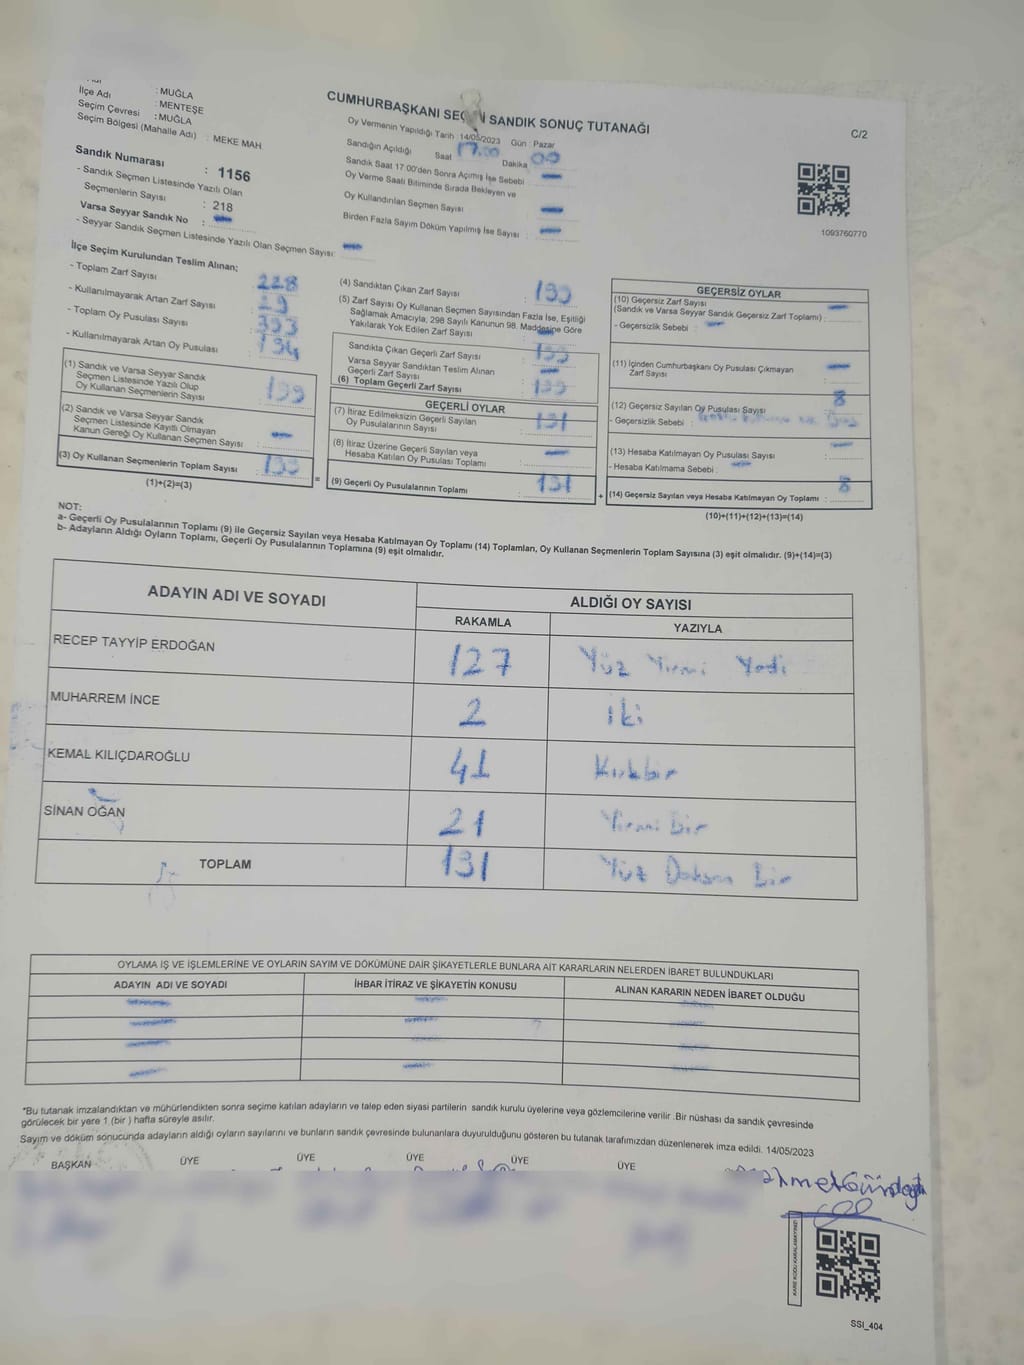 İlçe Adı : MUĞLA
: MENTEŞE
Seçim Çevresi : MUĞLA
Seçim Bölgesi (Mahalle Adı) : MEKE MAH
CUMHURBAŞKANI SEÇ SANDIK SONUÇ TUTANAĞI
C/2
Oy Vermenin Yapıldığı Tarih 14/05/2023 Gün : Pazar
Sandığın Açıldığı Saat 17.00 Dakika 00
Sandık Saat 17:00'den Sonra Açımış İse Sebebi
Oy Verme Saati Bitiminde Sırada Bekleyen ve
Oy Kullandırılan Seçmen Sayısı
Birden Fazla Sayım Döküm Yapılmış İse Sayısı :
1093760770
Sandık Numarası : 1156
- Sandık Seçmen Listesinde Yazılı Olan
Seçmenlerin Sayısı : 218
Varsa Seyyar Sandık No :
- Seyyar Sandık Seçmen Listesinde Yazılı Olan Seçmen Sayısı:
İlçe Seçim Kurulundan Teslim Alınan;
- Toplam Zarf Sayısı : 228
- Kullanılmayarak Artan Zarf Sayısı : 29
- Toplam Oy Pusulası Sayısı : 393
- Kullanılmayarak Artan Oy Pusulası 194
(1) Sandık ve Varsa Seyyar Sandık
Seçmen Listesinde Yazılı Olup
Oy Kullanan Seçmenlerin Sayısı : 199
(2) Sandık ve Varsa Seyyar Sandık
Seçmen Listesinde Kayıtlı Olmayan
Kanun Gereği Oy Kullanan Seçmen Sayısı :
(3) Oy Kullanan Seçmenlerin Toplam Sayısı : 199
(1)+(2)=(3)
=
(4) Sandıktan Çıkan Zarf Sayısı : 199
(5) Zarf Sayısı Oy Kullanan Seçmen Sayısından Fazla İse, Eşitliği
Sağlamak Amacıyla, 298 Sayılı Kanunun 98. Maddesine Göre
Yakılarak Yok Edilen Zarf Sayısı :
Sandıkta Çıkan Geçerli Zarf Sayısı : 199
Varsa Seyyar Sandıktan Teslim Alınan
Geçerli Zarf Sayısı :
(6) Toplam Geçerli Zarf Sayısı : 199
GEÇERLİ OYLAR
(7) İtiraz Edilmeksizin Geçerli Sayılan
Oy Pusulalarının Sayısı : 191
(8) İtiraz Üzerine Geçerli Sayılan veya
Hesaba Katılan Oy Pusulası Toplamı :
(9) Geçerli Oy Pusulalarının Toplamı : 191
+
GEÇERSİZ OYLAR
(10) Geçersiz Zarf Sayısı
(Sandık ve Varsa Seyyar Sandık Geçersiz Zarf Toplamı) :
- Geçersizlik Sebebi :
(11) İçinden Cumhurbaşkanı Oy Pusulası Çıkmayan
Zarf Sayısı :
(12) Geçersiz Sayılan Oy Pusulası Sayısı : 8
- Geçersizlik Sebebi :
(13) Hesaba Katılmayan Oy Pusulası Sayısı :
- Hesaba Katılmama Sebebi :
(14) Geçersiz Sayılan veya Hesaba Katılmayan Oy Toplamı : 8
(10)+(11)+(12)+(13)=(14)
NOT:
a- Geçerli Oy Pusulalarının Toplamı (9) ile Geçersiz Sayılan veya Hesaba Katılmayan Oy Toplamı (14) Toplamları, Oy Kullanan Seçmenlerin Toplam Sayısına (3) eşit olmalıdır. (9)+(14)=(3)
b- Adayların Aldığı Oyların Toplamı, Geçerli Oy Pusulalarının Toplamına (9) eşit olmalıdır.
ADAYIN ADI VE SOYADI
ALDIĞI OY SAYISI
RAKAMLA YAZIYLA
RECEP TAYYİP ERDOĞAN 127 Yüz Yirmi Yedi
MUHARREM İNCE 2 iki
KEMAL KILIÇDAROĞLU 41 Kırkbir
SİNAN OĞAN 21 Yirmi bir
TOPLAM 191 Yüz Doksan bir
OYLAMA İŞ VE İŞLEMLERİNE VE OYLARIN SAYIM VE DÖKÜMÜNE DAİR ŞİKAYETLERLE BUNLARA AİT KARARLARIN NELERDEN İBARET BULUNDUKLARI
ADAYIN ADI VE SOYADI İHBAR İTİRAZ VE ŞİKAYETİN KONUSU ALINAN KARARIN NEDEN İBARET OLDUĞU
*Bu tutanak imzalandıktan ve mühürlendikten sonra seçime katılan adayların ve talep eden siyasi partilerin sandık kurulu üyelerine veya gözlemcilerine verilir .Bir nüshası da sandık çevresinde
görülecek bir yere 1 (bir ) hafta süreyle asılır.
Sayım ve döküm sonucunda adayların aldığı oyların sayılarını ve bunların sandık çevresinde bulunanlara duyurulduğunu gösteren bu tutanak tarafımızdan düzenlenerek imza edildi. 14/05/2023
BAŞKAN ÜYE ÜYE ÜYE ÜYE ÜYE
KARE KODU KARALAMAYINIZ!
SSI_404